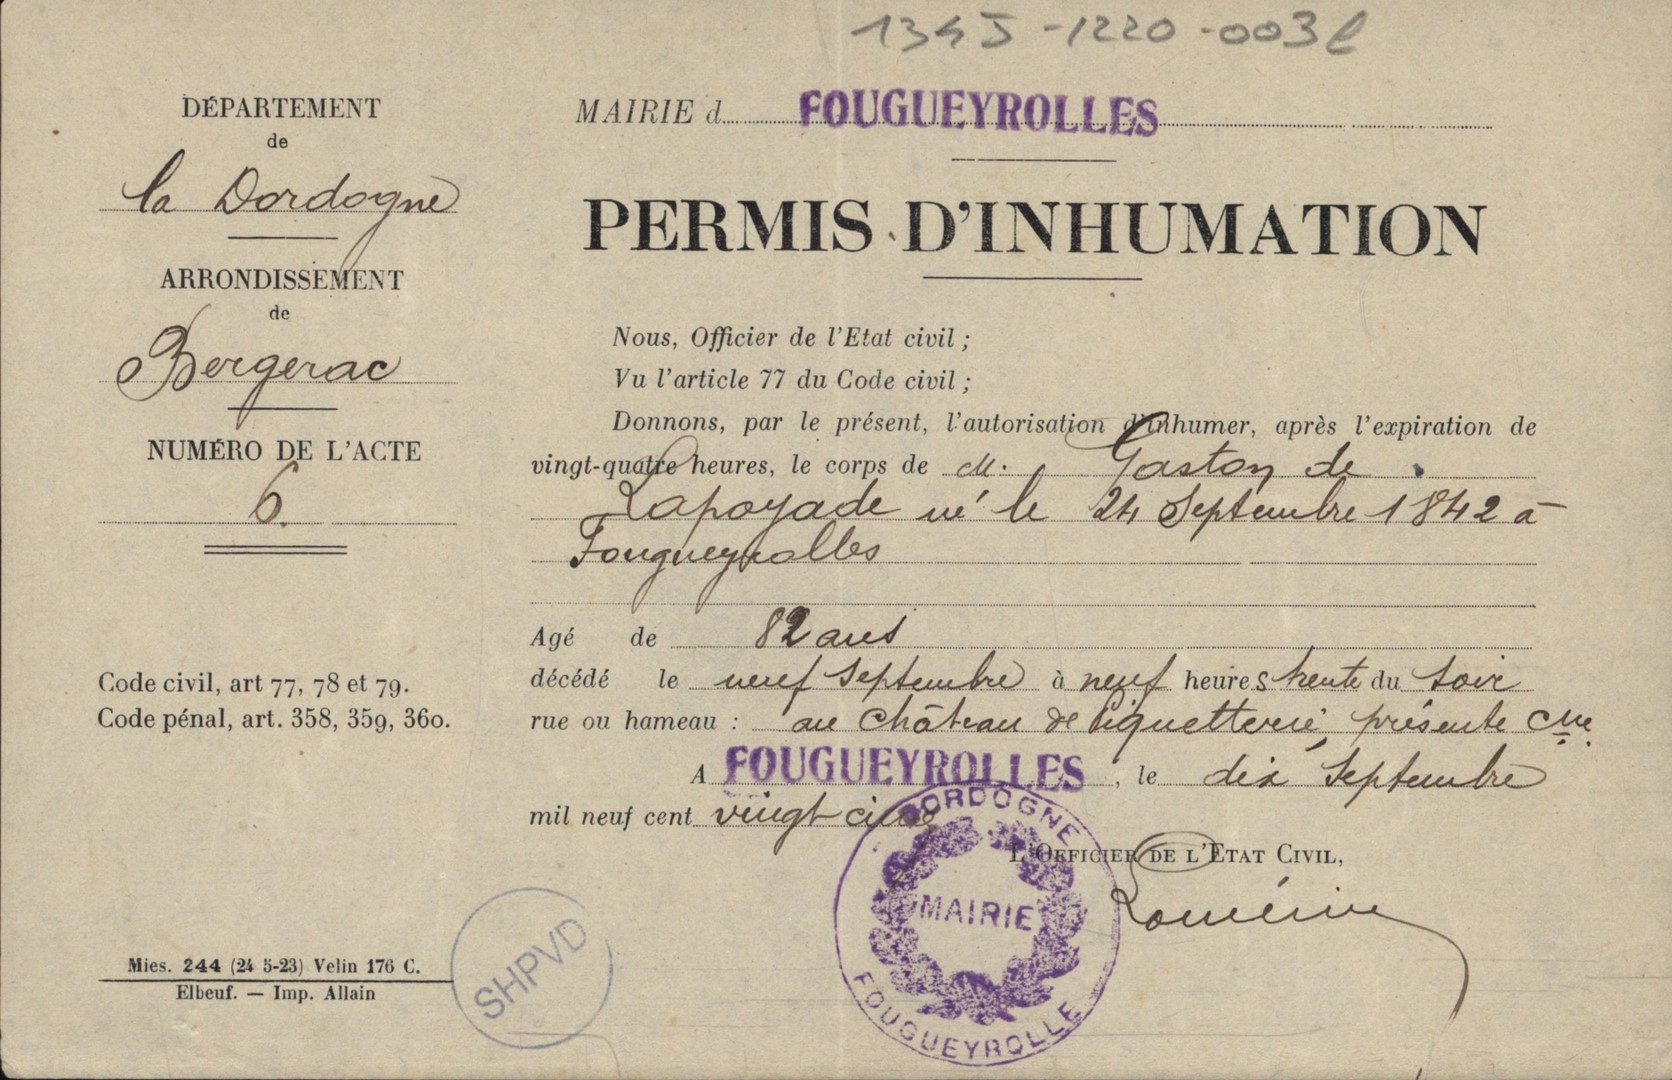 1345-1220-003
DÉPARTEMENT
de
la Dordogne
ARRONDISSEMENT
de
Bergerac
NUMÉRO DE L'ACTE
6.
Code civil, art 77, 78 et 79.
Code pénal, art. 358, 359, 360.
Mies. 244 (24 5-23) Velin 176 C.
Elbeuf. — Imp. Allain
SHPVD
MAIRIE d FOUGUEYROLLES
PERMIS D'INHUMATION
Nous, Officier de l'Etat civil ;
Vu l'article 77 du Code civil ;
Donnons, par le présent, l'autorisation d'inhumer, après l'expiration de
vingt-quatre heures, le corps de M. Gaston de
Lapoyade né le 24 Septembre 1842 à
Fougueyrolles
Agé de 82 ans
décédé le neuf septembre à neuf heures trente du soir
rue ou hameau : au château de présente Cne
A FOUGUEYROLLES, le dix Septembre
mil neuf cent vingt cinq
L'OFFICIER DE L'ETAT CIVIL,
DORDOGNE
MAIRIE
FOUGUEYROLLE